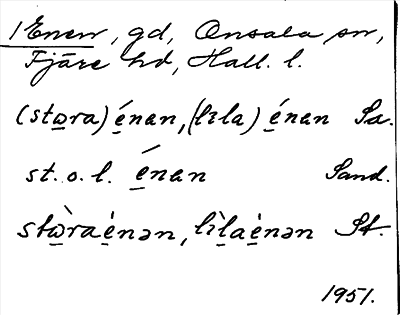 1 Enen, gd, Onsala sn,
Fjäre hd, Hall. l.
(stɷ̲ra) é̲nan, (lila) é̲nan Sa.
st. o. l. é̲nan Sand.
stɷ̲̀raé̲nən, lì̲laé̲nən St.
1951.